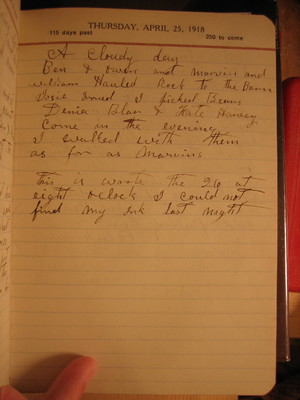 THURSDAY, APRIL 25, 1918
115 days past 250 to come
A Cloudy day
Ben & Owen and Marvin and
William Hauled Rock to the Barn
Josie Ironed I picked Beans
Blair & Kate Harvey
Come in the evening
I walked with them
as far as Marvins
This is wrote the 26 at
eight oclock I could not
find my ink last night